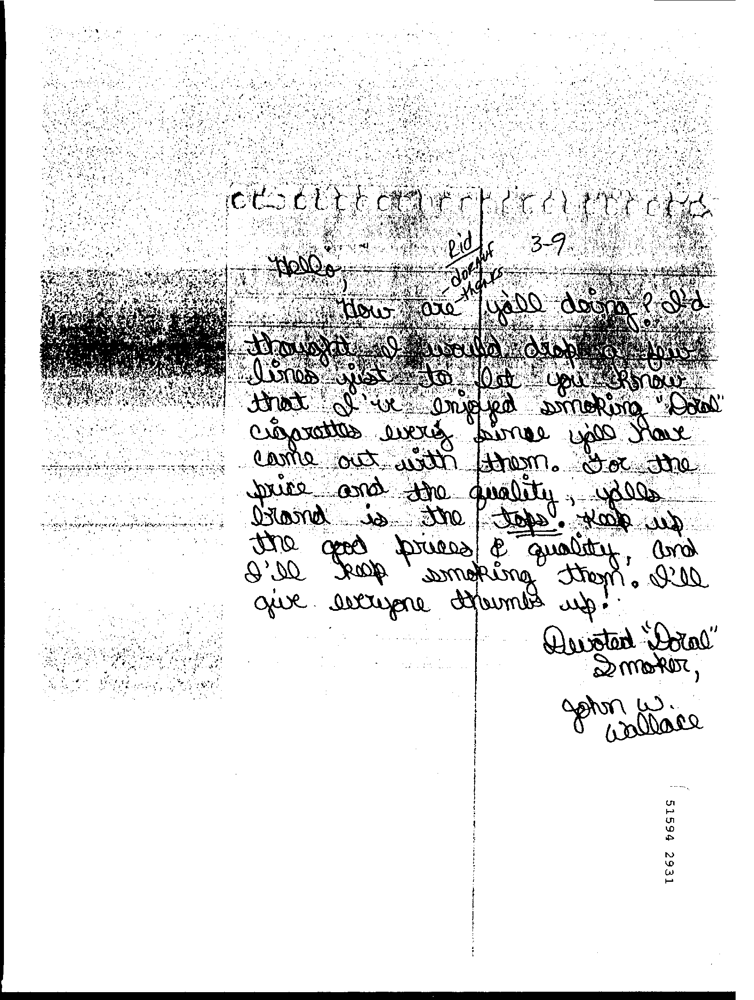 3-9
Hello,
How are y'all doing? I'd
thought I would drop a few
lines just to let you know
that I've enjoyed smoking "Doral"
cigarettes every since yall have
came out with them. For the
price and the quality, yalls
brand is the tops. Keep up
the good prices & quality, and
I'll keep smoking them. I'll
give everyone thumbs up.
Devoted "Doral"
Smoker,
John W.
Wallace
51594 2931